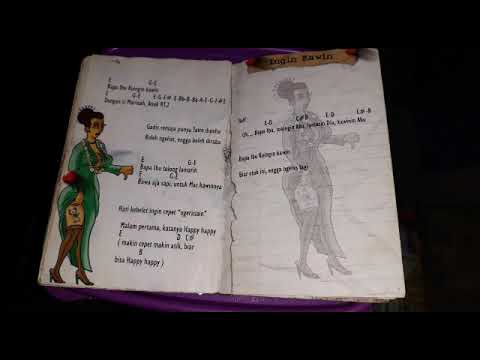 E G-E
Bapa Ibu Kuingin kawin
E G-E E-G-F# E-Bb-B-Bb-A-E-G-F#E
Dengan si Marinah, Anak RT.2
Gadis remaja punya
Boleh ngelirik, engga boleh diraba
E G-E
Bapa Ibu tolong lamarin
E G-E
Bawa aja sapi, untuk Mas kawinnya
Hari kebelet ingin cepet "ngerasain"
Malam pertama, katanya Happy happy
E D C#
( makin cepet makin asik, biar
B
bisa Happy happy )
Ingin Kawin
Reff :
E-D C#-B E-D C#-B
Oh... Bapa Ibu, kuingin Abu, lamarin Dia, kawinin Aku
Bapa Ibu Kuingin kawin
Biar otak ini, engga ngeres lagi